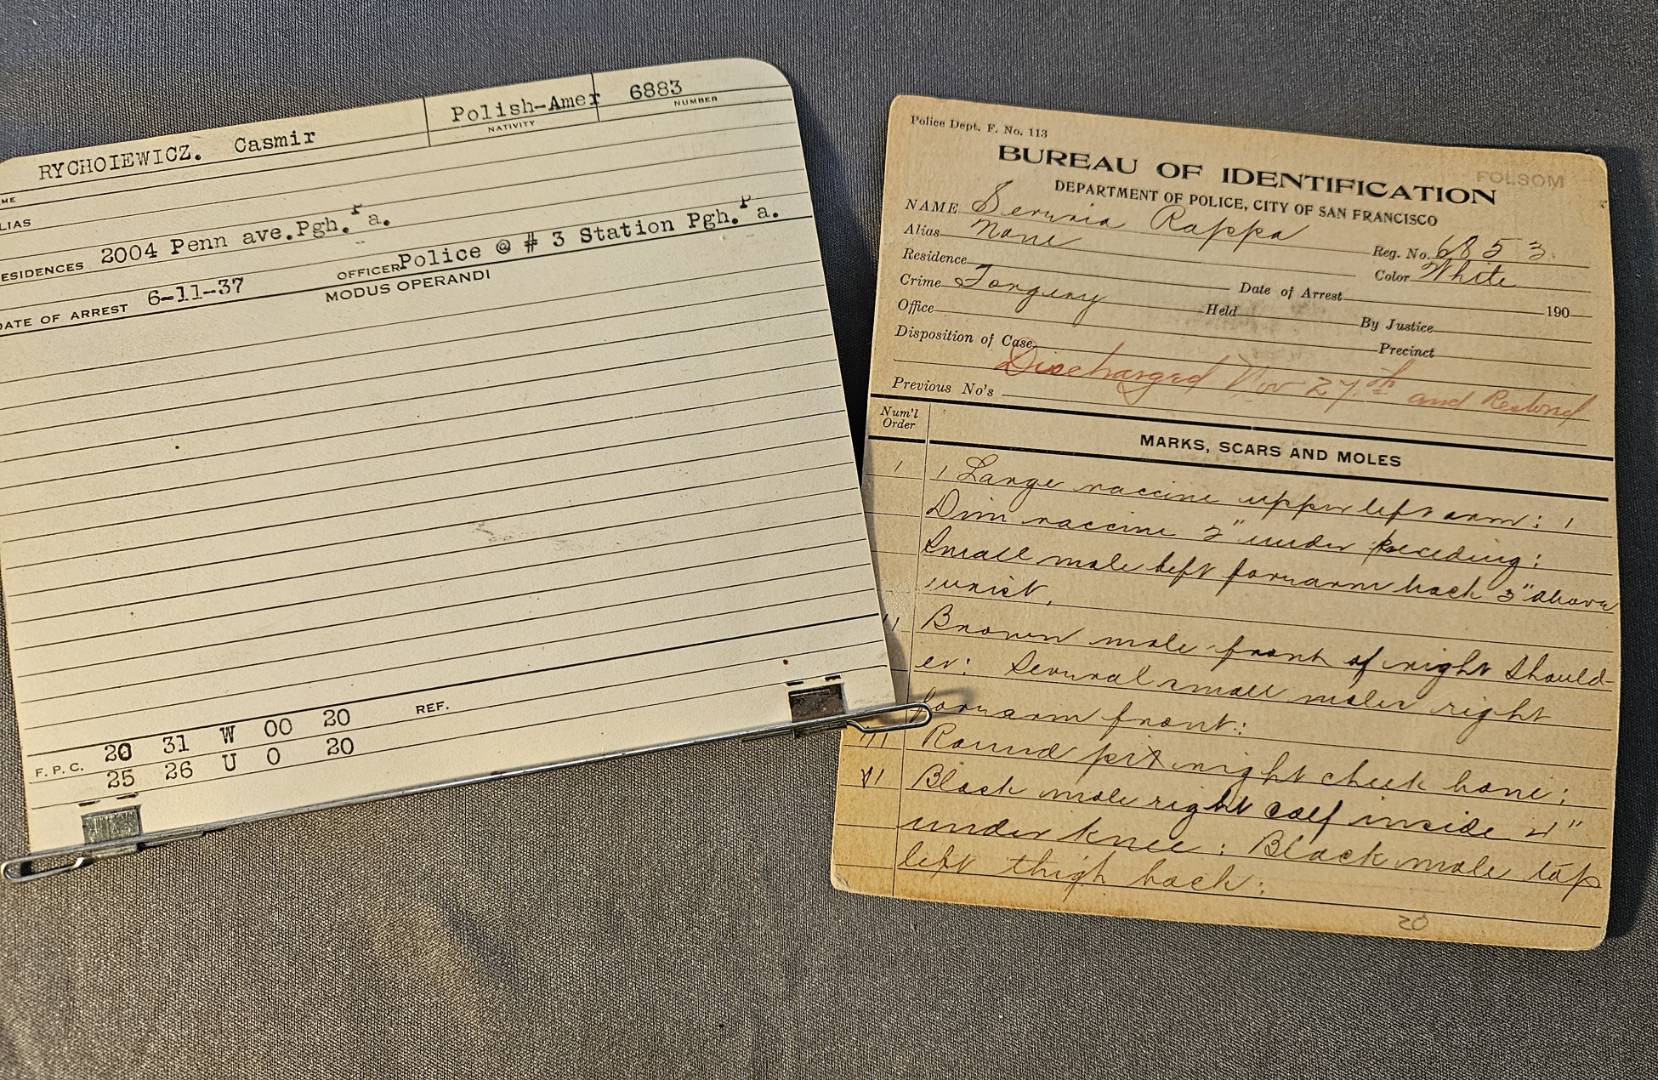 RYCHOIEWICZ. Casmir Polish-Amer 6883
ME NATIVITY NUMBER
LIAS
ESIDENCES 2004 Penn ave.Pgh. Pa.
DATE OF ARREST 6-11-37 OFFICER Police @ # 3 Station Pgh. Pa.
MODUS OPERANDI
F. P. C. 20 31 W 00 20 REF.
25 26 U 0 20
Police Dept. F. No. 113
FOLSOM
BUREAU OF IDENTIFICATION
DEPARTMENT OF POLICE, CITY OF SAN FRANCISCO
NAME Rappa Reg. No. 6853
Alias None Color White
Residence Date of Arrest 190
Crime Forgery Held By Justice
Office Precinct
Disposition of Case Discharged Nov 27th and
Previous No's
Num'l Order MARKS, SCARS AND MOLES
1 1 Large vaccine upper left arm: 1
Dim vaccine 2" under preceding:
Small mole left forearm back 3" above
wrist.
11 Brown mole front of right Should-
er: Several small moles right
forearm front:
Round pit right cheek bone:
V1 Black mole right calf inside 4"
under knee: Black mole top
left thigh back:
20